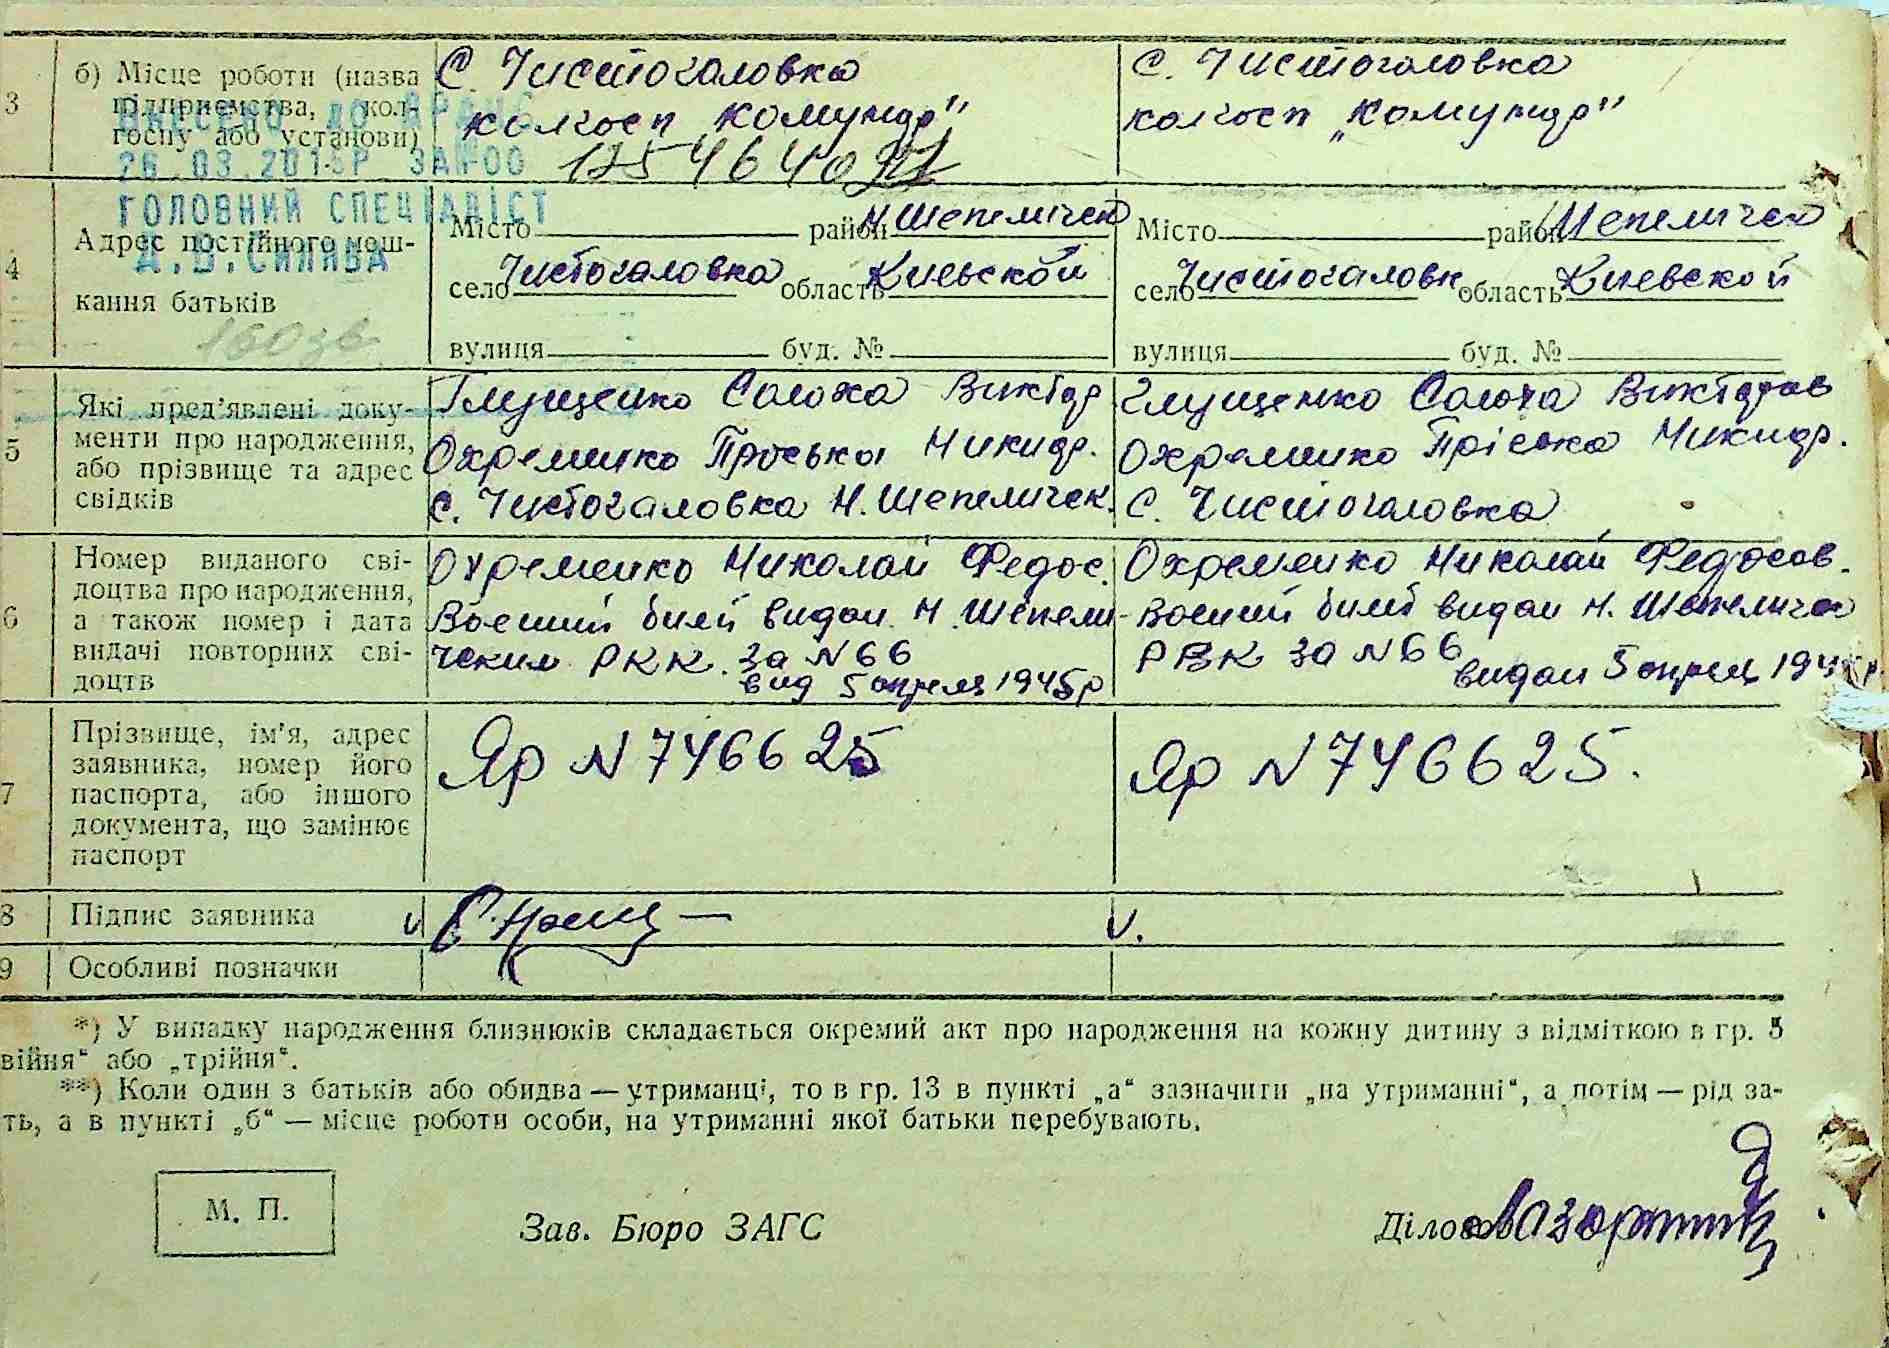 3 б) Місце роботи (назва підприємства, колгоспу або установи)
С. Чистогаловка
колгосп „Комунар"
12546402
С. Чистогаловка
колгосп „Комунар"
ВНЕСЕНО ДО ДРАЦС
26.03.201 Р ЗА №00
ГОЛОВНИЙ СПЕЦІАЛІСТ
4 Адрес постійного меш-
кання батьків
160зв
Місто район Н. Шепеличск
село Чистогаловка область Киевской
вулиця буд. №
Місто район Шепеличск
село Чистогаловк область Киевской
вулиця буд. №
5 Які пред'явлені доку-
менти про народження,
або прізвище та адрес
свідків
Глущенко Солоха Виктор
Охременко Приська Никидр.
с. Чистогаловка Н. Шепеличск.
Глущенко Солоха Викторов
Охременко Пріська Никидр.
С. Чистогаловка
6 Номер виданого сві-
доцтва про народження,
а також номер і дата
видачі повторних сві-
доцтв
Охременко Николай Федос.
Воений билй видан Н. Шепели-
ческим РКК. За N 66
вид 5 апреля 1945р
Охременко Николай Федосов.
Воений билй видан Н. Шепеличск
РВК за N 66
видан 5 апрель
7 Прізвище, ім'я, адрес
заявника, номер його
паспорта, або іншого
документа, що замінює
паспорт
Яр N 746625
Яр N 746625.
8 Підпис заявника
v
v.
9 Особливі позначки
*) У випадку народження близнюків складається окремий акт про народження на кожну дитину з відміткою в гр. 5
війня" або „трійня".
**) Коли один з батьків або обидва — утриманці, то в гр. 13 в пункті „а" зазначити „на утриманні", а потім — рід за-
ть, а в пункті „б" — місце роботи особи, на утриманні якої батьки перебувають.
М. П.
Зав. Бюро ЗАГС
Діловод